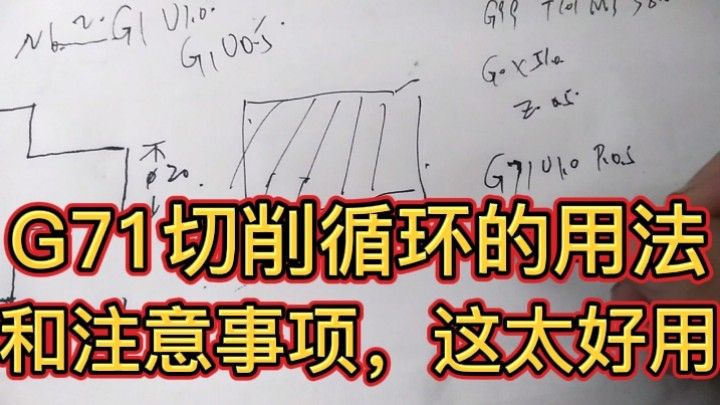 G1 U1.0
G1 U0.5
φ20
Z0.5
G71 U1.0 R0.5
G71切削循环的用法
和注意事项，这太好用